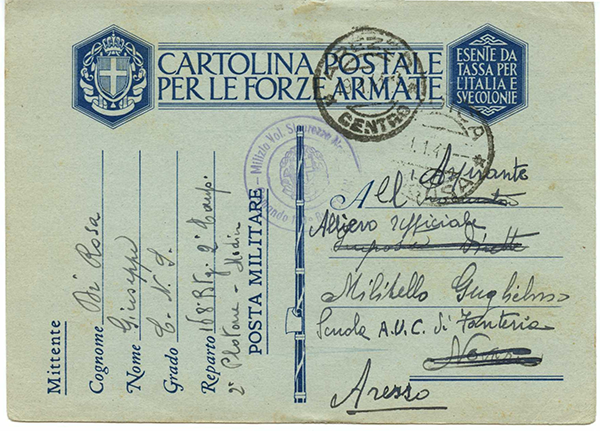 CARTOLINA POSTALE
PER LE FORZE ARMATE
ESENTE DA
TASSA PER
L'ITALIA E
SVE COLONIE
AREZZO
CENTRO
Milizia Vol. Sicurezza
Mittente
Cognome Di Rosa
Nome Giuseppe
Grado C. N. S.
Reparto 168 Btg. 2ª Comp.
2° Plotone
POSTA MILITARE
All Aspirante
Allievo Ufficiale
Militello Guglielmo
Scuola A.U.C. di Fanteria
Arezzo